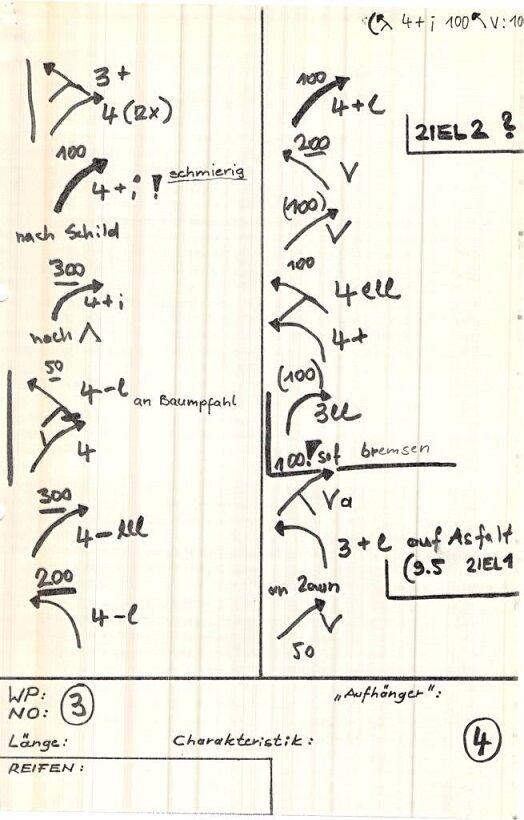 4+i 100 V: 10
3+
4 (2x)
100
4+i ! schmierig
nach Schild
300
4+i
nach Λ
50
4-l an Baumpfahl
V 4
300
4-lll
200
4-l
100
4+l
ZIEL 2 ?
200
V
(100)
V
100
4 lll
4+
(100)
3ll
100! sof bremsen
Va
3+l auf Asfalt
(9.5 ZIEL 1
an Zaun
V
50
WP:
NO: 3
Länge:
Charakteristik:
„Aufhänger":
4
REIFEN: